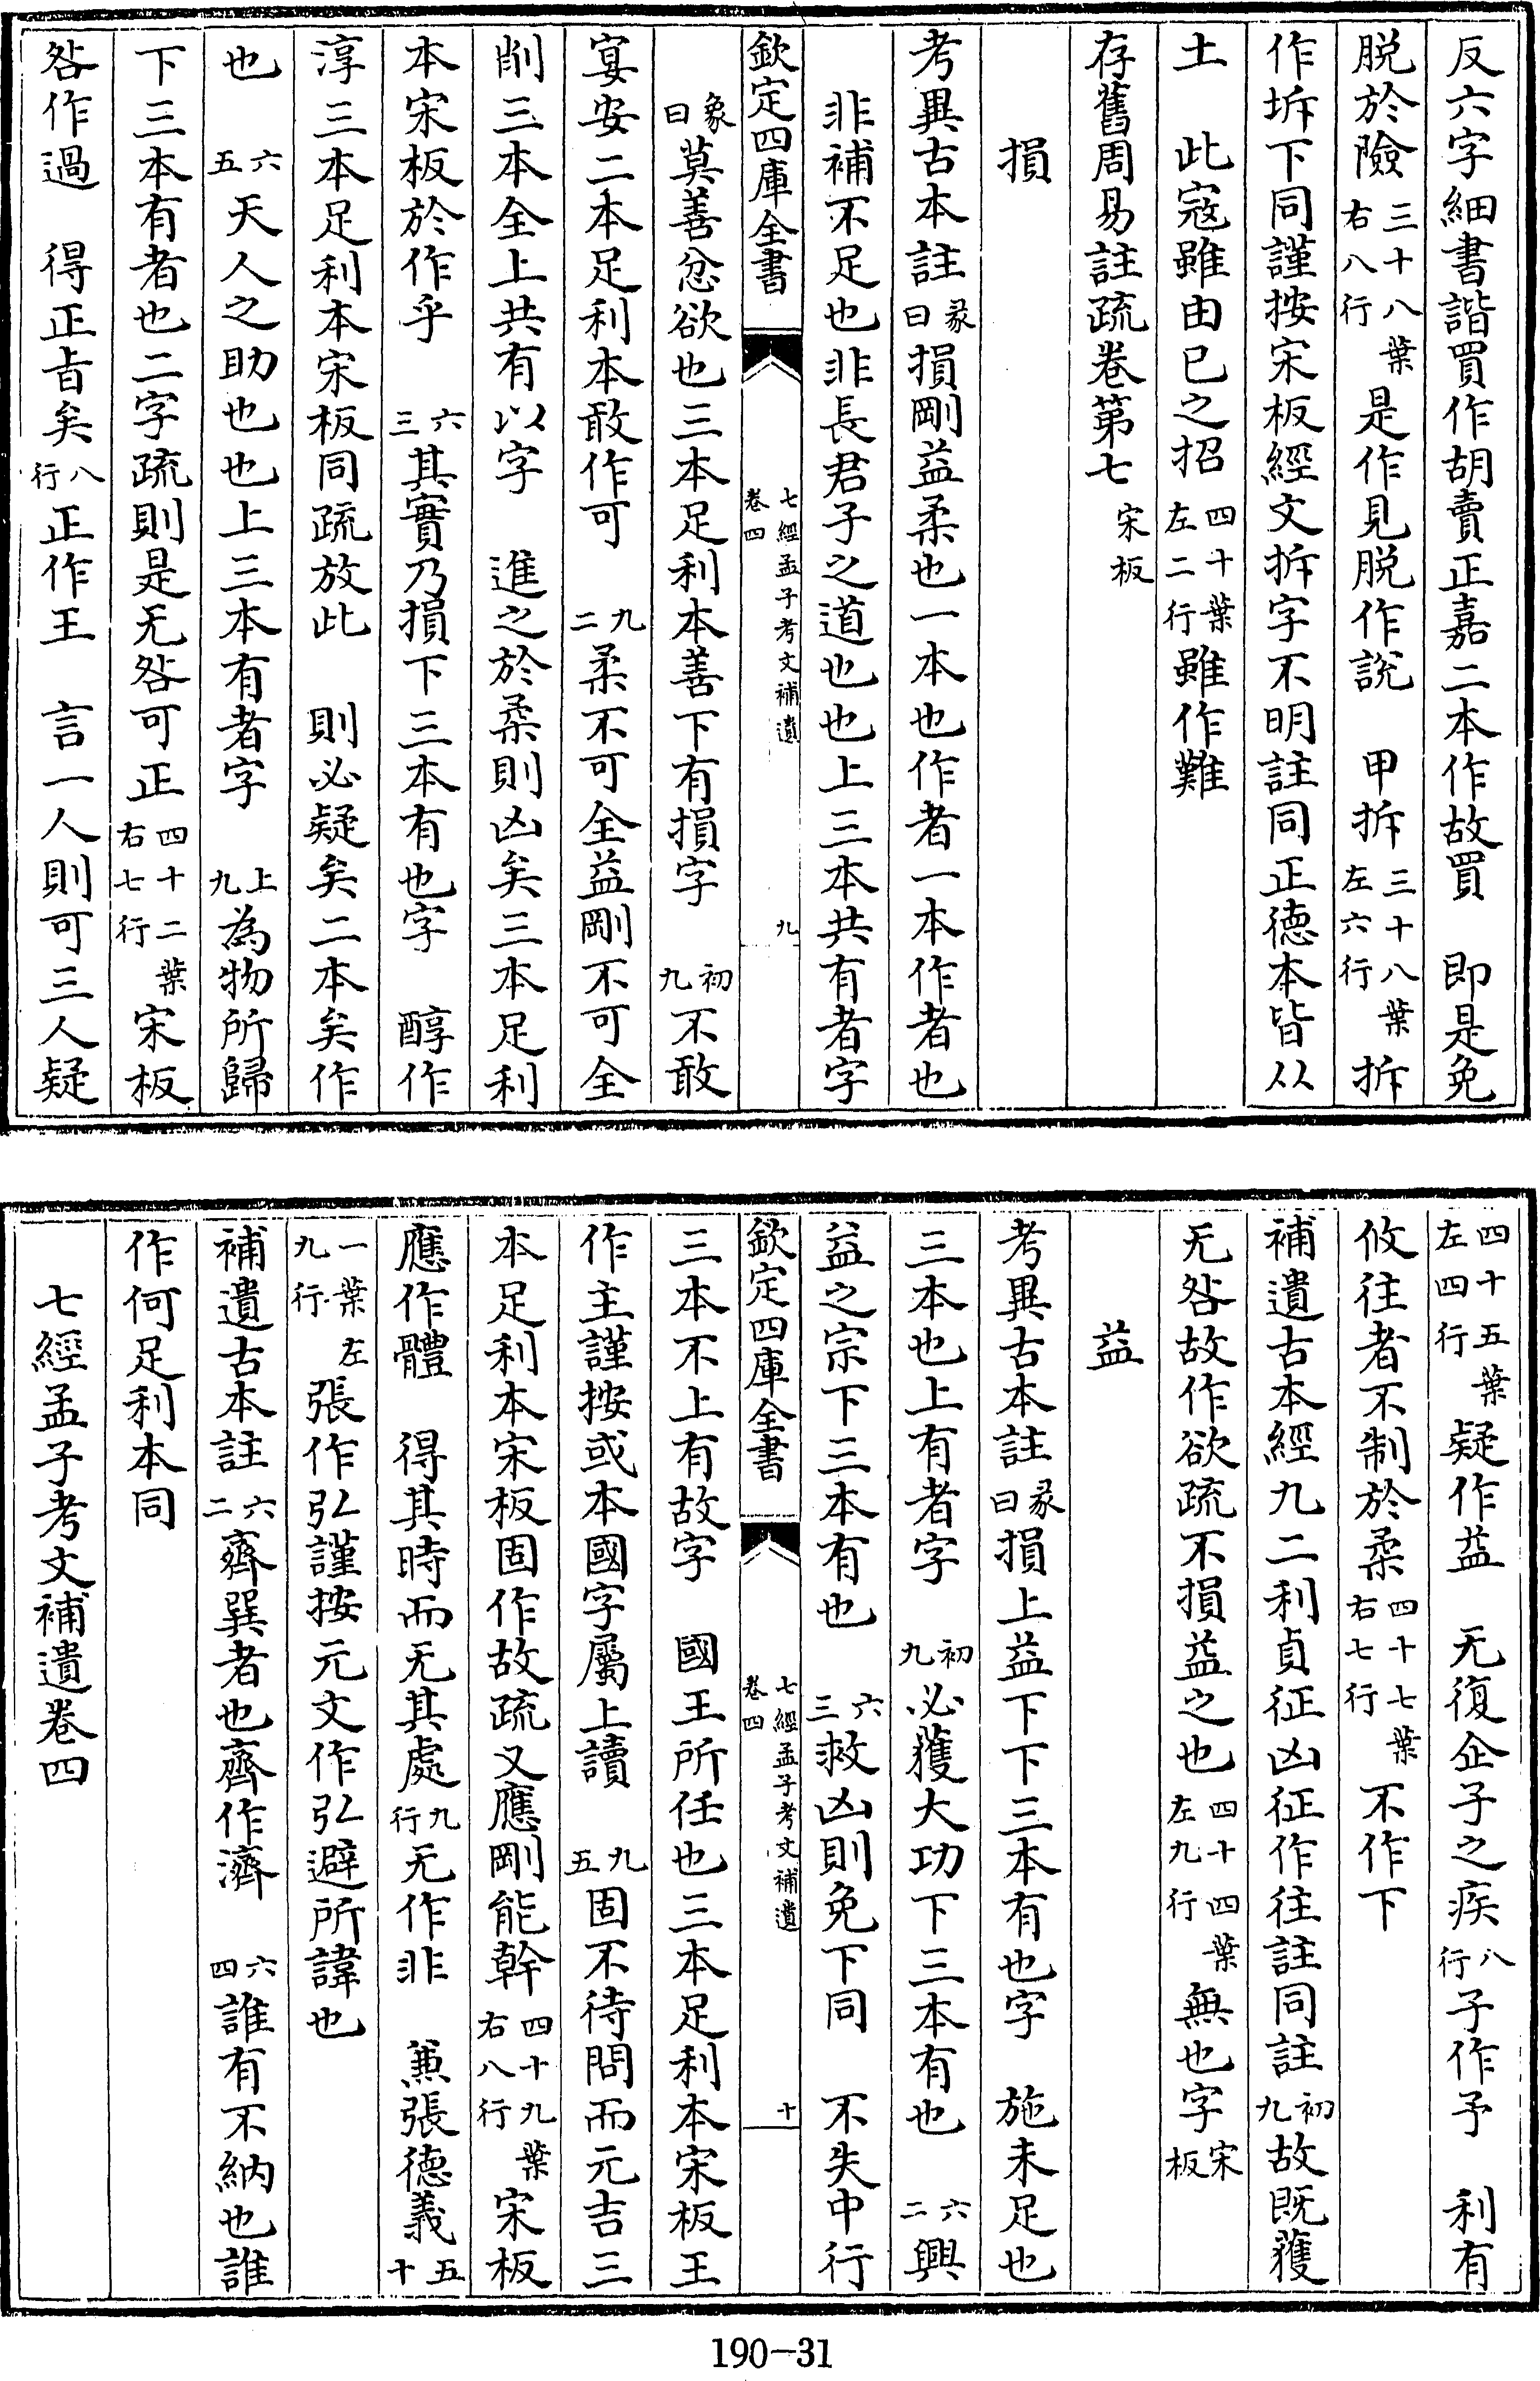 反六字細書諧買作胡賣正嘉二本作故買　即是免
脱於險三十八葉右八行是作見脱作説　甲拆三十八葉左六行拆
作坼下同謹按宋板經文拆字不明註同正德本皆从
土　此寇雖由已之招四十葉左二行雖作難
存舊周易註疏卷第七宋板
損
考異古本註彖曰損剛益柔也一本也作者一本作者也
非補不足也非長君子之道也也上三本共有者字
欽定四庫全書　七經孟子考文補遺卷四　九
象曰莫善忿欲也三本足利本善下有損字　初九不敢
宴安二本足利本敢作可　九二柔不可全益剛不可全
削三本全上共有以字　進之於柔則凶矣三本足利
本宋板於作乎　六三其實乃損下三本有也字　醇作
淳三本足利本宋板同疏放此　則必疑矣二本矣作
也　六五天人之助也也上三本有者字　上九為物所歸
下三本有者也二字疏則是无咎可正四十二葉右七行宋板
咎作過　得正旨矣八行正作王　言一人則可三人疑
四十五葉左四行疑作益　无復企子之疾八行子作予　利有
攸往者不制於柔四十七葉右七行不作下
補遺古本經九二利貞征凶征作往註同註初九故既獲
无咎故作欲疏不損益之也四十四葉左九行無也字宋板
益
考異古本註彖曰損上益下下三本有也字　施未足也
三本也上有者字　初九必獲大功下三本有也　六二興
益之宗下三本有也　六三救凶則免下同　不失中行
欽定四庫全書　七經孟子考文補遺卷四　十
三本不上有故字　國王所任也三本足利本宋板王
作主謹按或本國字屬上讀　九五固不待問而元吉三
本足利本宋板固作故疏又應剛能幹四十九葉右八行宋板
應作體　得其時而无其處九行无作非　兼張德義五十
一葉左九行張作弘謹按元文作弘避所諱也
補遺古本註六二齊巽者也齊作濟　六四誰有不納也誰
作何足利本同
七經孟子考文補遺卷四
190-31